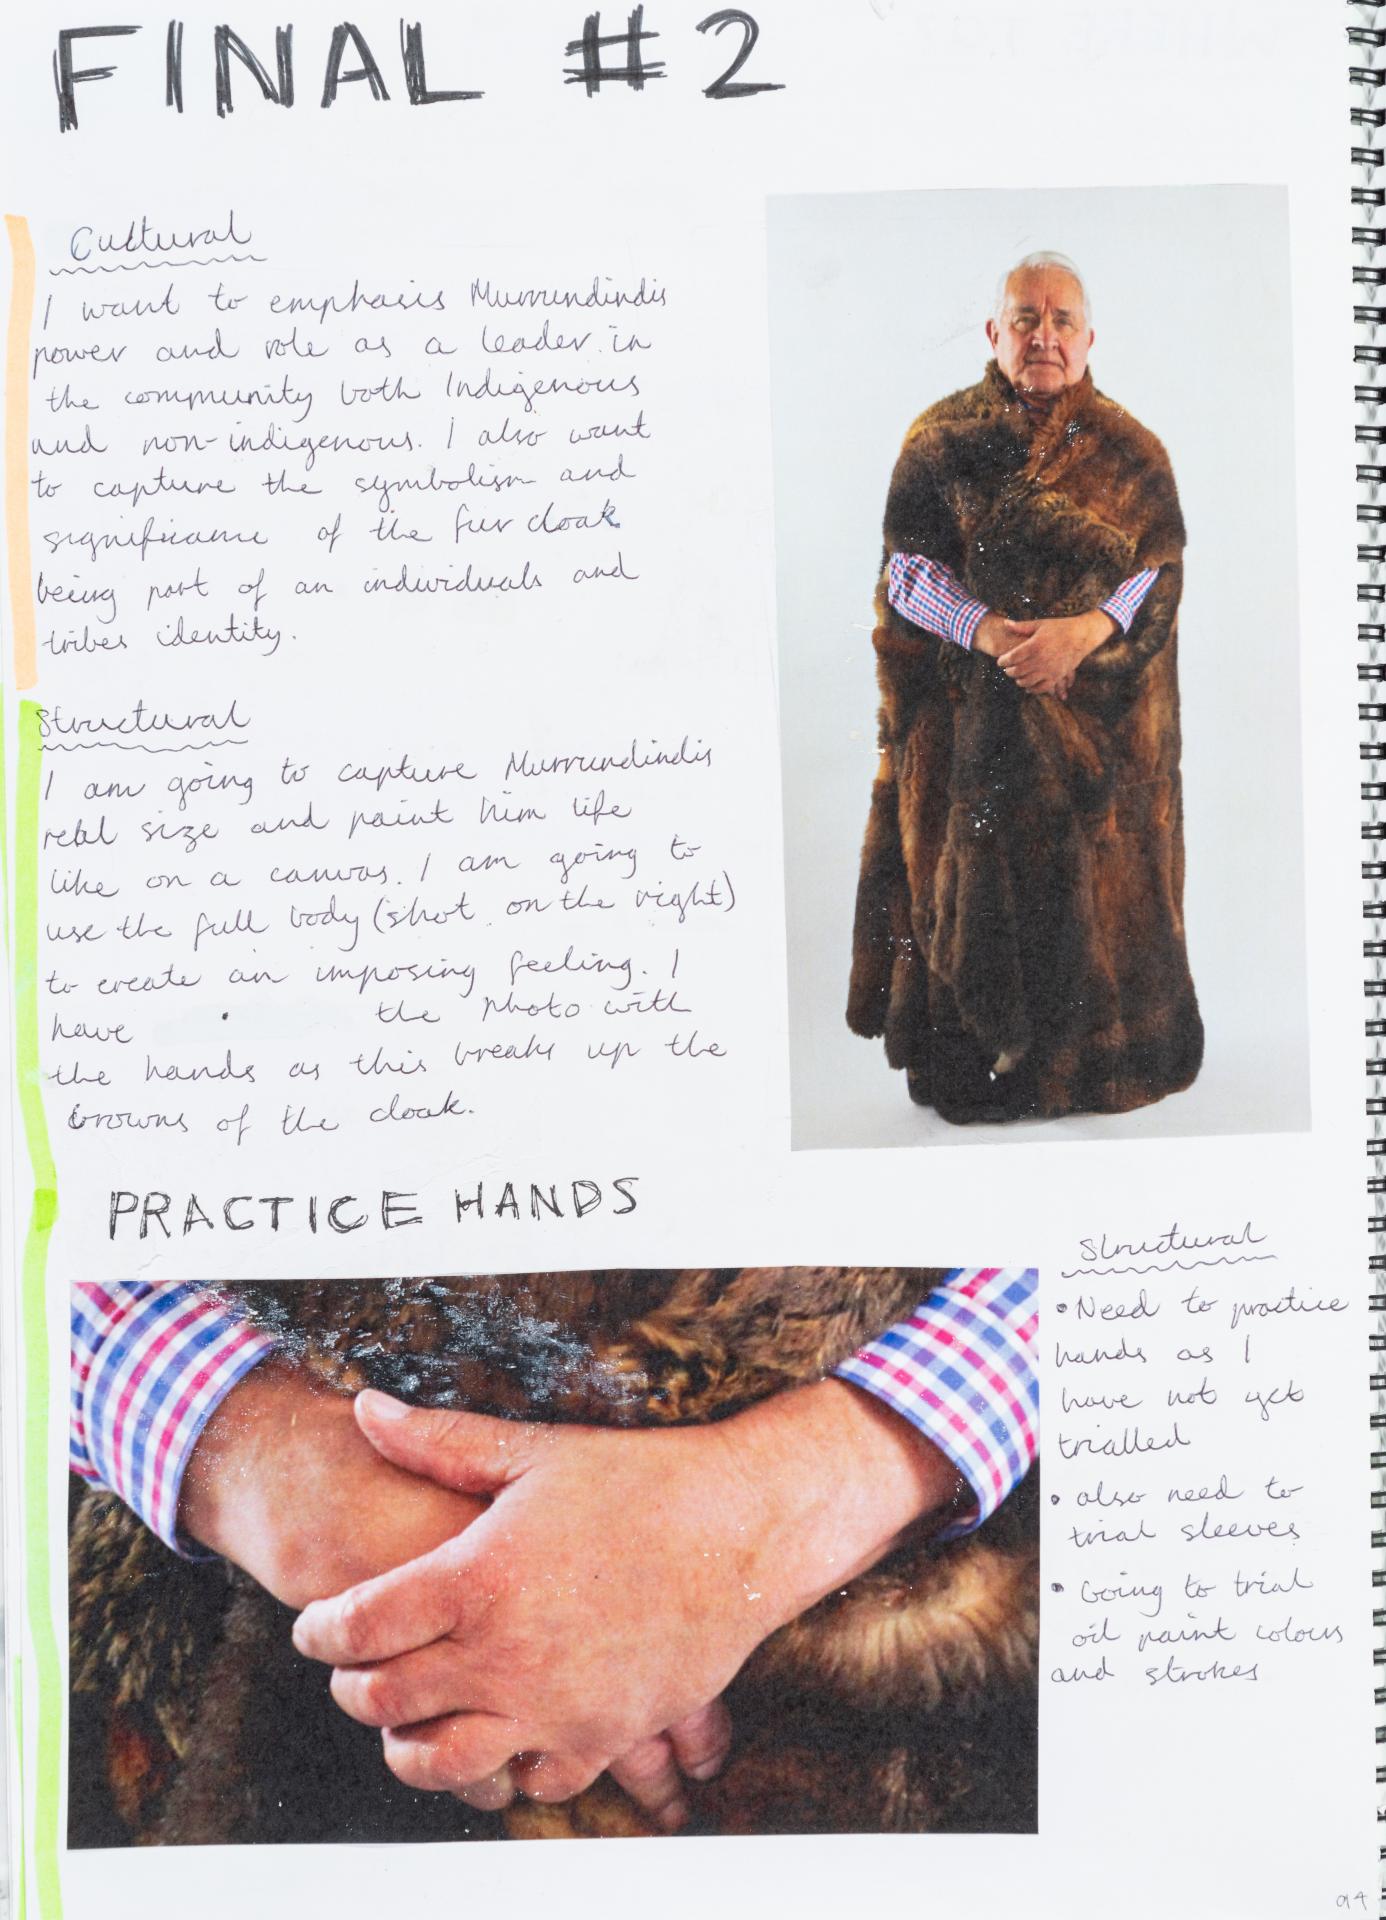 FINAL #2
Cultural
I want to emphasis Murrundindis
power and role as a leader in
the community both Indigenous
and non-indigenous. I also want
to capture the symbolism and
significanc of the fur cloak
being part of an individuals and
tribes identity.
Structural
I am going to capture Murrundindis
real size and paint him life
like on a canvas. I am going to
use the full body (shot on the right)
to create an imposing feeling. I
have the photo with
the hands as this breaks up the
browns of the cloak.
PRACTICE HANDS
Structural
• Need to practice
hands as I
have not yet
trialled
• also need to
trial sleeves
• Going to trial
oil paint colours
and strokes
94